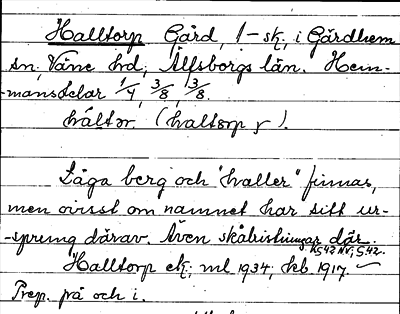 Halltorp Gård, 1-sk, i Gärdhem
sn; Väne hd; Älfsborgs län. Hem-
-mansdelar 1/4, 3/8, 3/8.
håltor. (haltorp r).
Låga berg och "haller" finnas,
men ovisst om namnet har sitt ur-
-sprung därav. Även skålristningar där.
KG 42 NV; G. 42.
Halltorp ek; ml 1934; hb. 1917.
Prep. på och i.